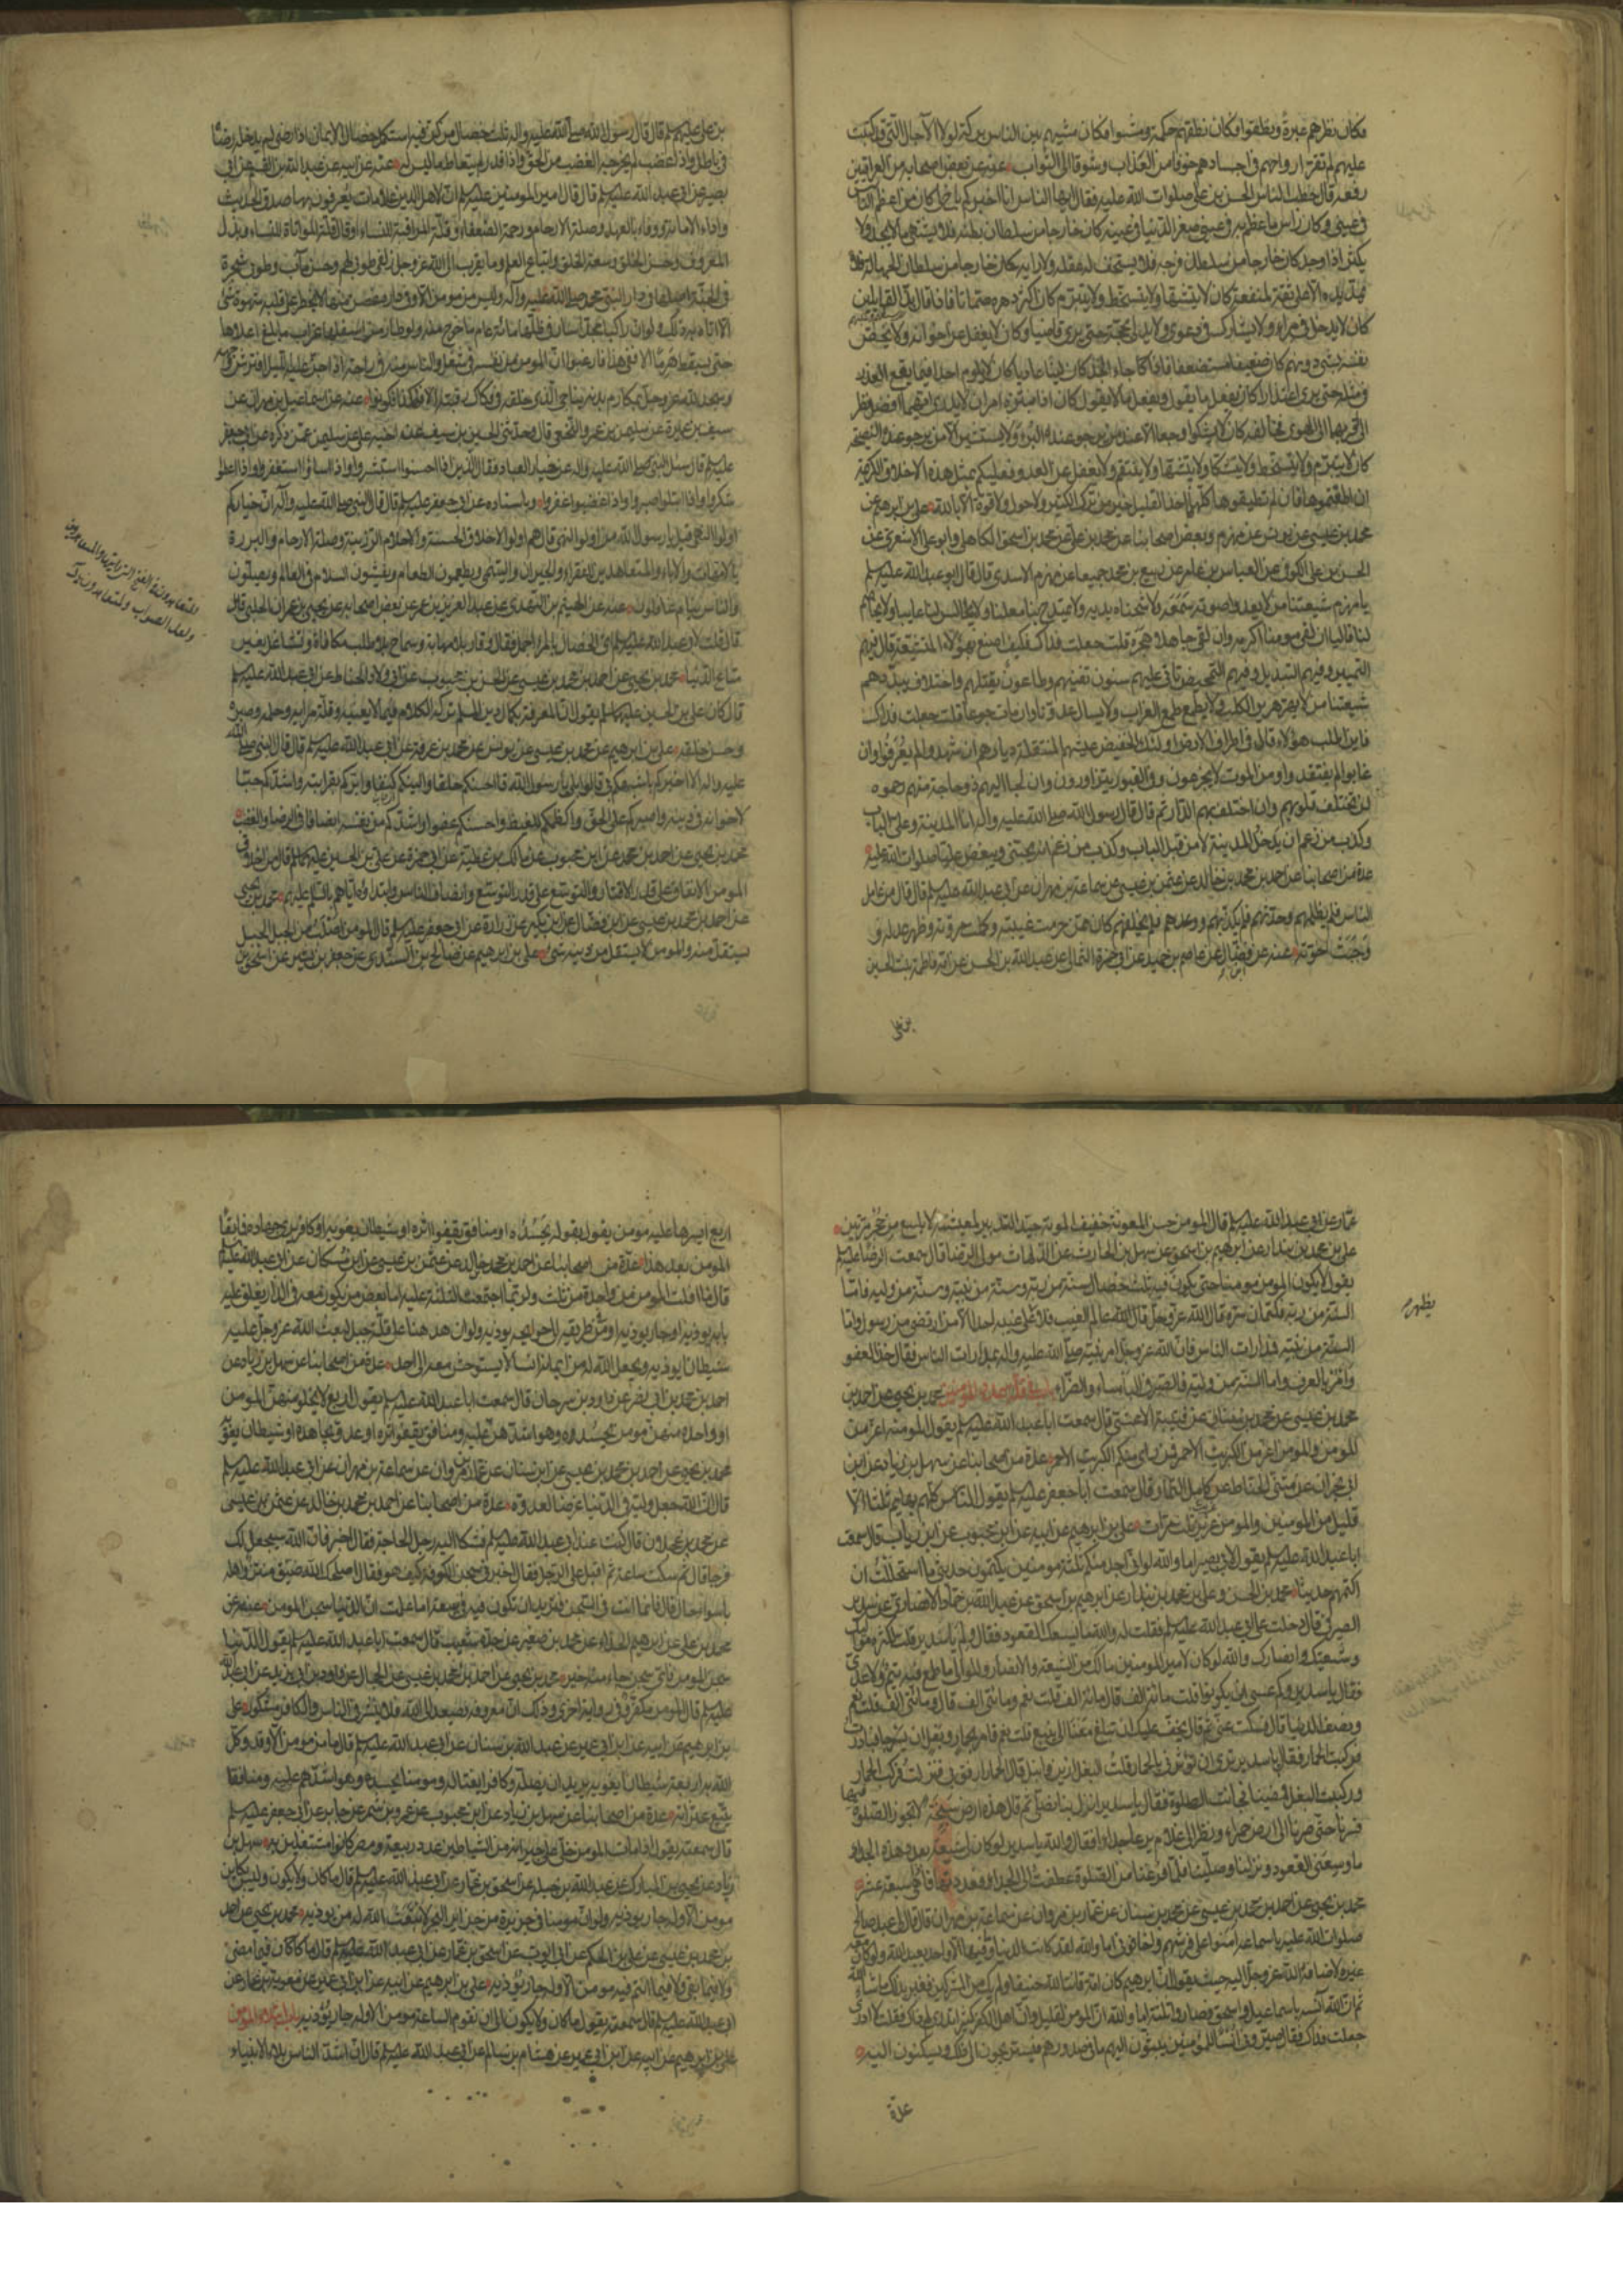 فكان نظرهم عبرة ونطقوا فكان نطقهم حكمة ومشوا فكان مشيهم بين الناس بركة لولا الآجال التي قد كتبت
عليهم لم تقر ارواحهم في اجسادهم خوفا من العذاب وشوقا الى الثواب عنه عن بعض اصحابه من العراقيين
رفعه قال خطب الناس الحسن بن علي صلوات الله عليه فقال ايها الناس انا اخبركم عن اخ لي كان من اعظم الناس
في عيني وكان راس ما عظم به في عيني صغر الدنيا في عينه كان خارجا من سلطان بطنه فلا يشتهي ما لا يجد ولا
يكثر اذا وجد كان خارجا من سلطان فرجه فلا يستخف له عقله ولا رايه كان خارجا من سلطان الجهالة فلا
يمد يده الا على ثقة لمنفعة كان لا يتشهى ولا يتسخط ولا يتبرم كان اكثر دهره صماتا فاذا قال بذ القايلين
كان لا يدخل في مراء ولا يشارك في دعوى ولا يدلي بحجة حتى يرى قاضيا وكان لا يغفل عن اخوانه ولا يخص
نفسه بشيء دونهم كان ضعيفا مستضعفا فاذا جاء الجد كان ليثا عاديا كان لا يلوم احدا فيما يقع العذر
في مثله حتى يرى اعتذارا كان يفعل ما يقول ويفعل ما لا يقول كان اذا ابتزه امران لا يدري ايهما افضل نظر
الى اقربهما الى الهوى فخالفه كان لا يشكو وجعا الا عند من يرجو عنده البرء ولا يستشير الا من يرجو عنده النصيحة
كان لا يتبرم ولا يتسخط ولا يتشكى ولا يتشهى ولا ينتقم ولا يغفل عن العدو فعليكم بمثل هذه الاخلاق الكريمة
ان اطقتموها فان لم تطيقوها كلها فاخذ القليل خير من ترك الكثير ولا حول ولا قوة الا بالله علي بن ابرهيم عن
محمد بن عيسى عن يونس عن مهزم وبعض اصحابنا عن محمد بن علي عن محمد بن اسحق الكاهلي وابو علي الاشعري عن
الحسن بن علي الكوفي عن العباس بن عامر عن ربيع بن محمد جميعا عن مهزم الاسدي قال قال ابو عبد الله عليه السلم
يا مهزم شيعتنا من لا يعدو صوته سمعه ولا شحناه بدنه ولا يمتدح بنا معلنا ولا يجالس لنا عايبا ولا يخاصم
لنا قاليا ان لقي مومنا اكرمه وان لقي جاهلا هجره قلت جعلت فداك فكيف اصنع بهؤلاء المتشيعة قال فيهم
التمييز وفيهم التبديل وفيهم التمحيص تاتي عليهم سنون تفنيهم وطاعون يقتلهم واختلاف يبددهم
شيعتنا من لا يهر هرير الكلب ولا يطمع طمع الغراب ولا يسال عدونا وان مات جوعا قلت جعلت فداك
فاين اطلب هؤلاء قال في اطراف الارض اولئك الخفيض عيشهم المنتقلة ديارهم ان شهدوا لم يعرفوا وان
غابوا لم يفتقدوا ومن الموت لا يجزعون وفي القبور يتزاورون وان لجا اليهم ذو حاجة منهم رحموه
لن تختلف قلوبهم وان اختلف بهم الدار ثم قال قال رسول الله صلى الله عليه واله انا المدينة وعلي الباب
وكذب من زعم ان يدخل المدينة لا من قبل الباب وكذب من زعم انه يحبني ويبغض عليا صلوات الله عليه
عدة من اصحابنا عن احمد بن محمد بن خالد عن عثمن بن عيسى عن سماعة بن مهران عن ابي عبد الله عليه السلم قال قال من عامل
الناس فلم يظلمهم وحدثهم فلم يكذبهم ووعدهم فلم يخلفهم كان ممن حرمت غيبته وكملت مروته وظهر عدله و
وجبت اخوته عنه عن ابن فضال عن عاصم بن حميد عن ابي حمزة الثمالي عن عبد الله بن الحسن عن امه فاطمة بنت الحسين
بن علي
بن علي عليهم السلم قال قال رسول الله صلى الله عليه واله ثلث خصال من كن فيه استكمل خصال الايمان اذا رضي لم يدخله رضاه
في باطل واذا غضب لم يخرجه الغضب من الحق واذا قدر لم يتعاط ما ليس له عنه عن ابيه عن عبد الله بن القسم عن ابي
بصير عن ابي عبد الله عليه السلم قال قال امير المومنين عليه السلم ان لاهل الدين علامات يعرفون بها صدق الحديث
واداء الامانة ووفاء بالعهد وصلة الارحام ورحمة الضعفاء وقلة المراقبة للنساء او قال قلة المواتاة للنساء وبذل
المعروف وحسن الخلق وسعة الخلق واتباع العلم وما يقرب الى الله عز وجل زلفى طوبى لهم وحسن مآب وطوبى شجرة
في الجنة اصلها في دار النبي محمد صلى الله عليه وآله وليس من مومن الا وفي داره غصن منها لا يخطر على قلبه شهوة شيء
الا اتاه به ذلك ولو ان راكبا مجدا سار في ظلها مائة عام ما خرج منه ولو طار من اسفلها غراب ما بلغ اعلاها
حتى يسقط هرما الا ففي هذا فارغبوا ان المومن من نفسه في شغل والناس منه في راحة اذا جن عليه الليل افترش وجهه
وسجد لله عز وجل بمكارم بدنه يناجي الذي خلقه في فكاك رقبته الا فهكذا كونوا عنه عن اسماعيل بن مهران عن
سيف بن عميرة عن سليمن بن عمرو النخعي قال وحدثني الحسين بن سيف عن اخيه علي عن سليمن عمن ذكره عن ابي جعفر
عليه السلم قال سئل النبي صلى الله عليه واله عن خيار العباد فقال الذين اذا احسنوا استبشروا واذا اساؤا استغفروا واذا اعطوا
شكروا واذا ابتلوا صبروا واذا غضبوا غفروا وباسناده عن ابي جعفر عليه السلم قال قال النبي صلى الله عليه وآله ان خياركم
اولوا النهى قيل يا رسول الله من اولوا النهى قال هم اولوا الاخلاق الحسنة والاحلام الرزينة وصلة الارحام والبررة
بالامهات والاباء والمتعاهدين الفقراء والجيران واليتامى ويطعمون الطعام ويفشون السلام في العالم ويصلون
والناس نيام غافلون عنه عن الهيثم بن النهدي عن عبد العزيز بن عمر عن بعض اصحابه عن يحيى بن عمران الحلبي قال
قال قلت لابي عبد الله عليه السلم اي الخصال بالمرء اجمل فقال وقار بلا مهابة وسماح بلا طلب مكافاة وتشاغل بغير
متاع الدنيا محمد بن يحيى عن احمد بن محمد بن عيسى عن الحسن بن محبوب عن ابي ولاد الحناط عن ابي عبد الله عليه السلم
قال كان علي بن الحسين عليهما السلم يقول ان المعرفة بكمال دين المسلم تركه الكلام فيما لا يعنيه وقلة مرائه وحلمه وصبره
وحسن خلقه علي بن ابرهيم عن محمد بن عيسى عن يونس عن محمد بن عرفة عن ابي عبد الله عليه السلم قال قال النبي صلى الله
عليه واله الا اخبركم باشبهكم بي قالوا بلى يا رسول الله قال احسنكم خلقا والينكم كنفا وابركم بقرابته واشدكم حبا
لاخوانه في دينه واصبركم على الحق واكظمكم للغيظ واحسنكم عفوا واشدكم من نفسه انصافا في الرضا والغضب
محمد بن يحيى عن احمد بن محمد عن ابن محبوب عن مالك بن عطية عن ابي حمزة عن علي بن الحسين عليهما السلم قال من اخلاق
المومن الانفاق على قدر الاقتار والتوسع على قدر التوسع وانصاف الناس وابتداؤه اياهم بالسلام عليهم محمد بن يحيى
عن احمد بن محمد بن عيسى عن ابن فضال عن ابن بكير عن زرارة عن ابي جعفر عليه السلم قال المومن اصلب من الجبل الجبل
يستقل منه والمومن لا يستقل من دينه شيء علي بن ابرهيم عن صالح بن السندي عن جعفر بن بشير عن اسحق بن
عمار عن ابي عبد الله عليه السلم قال المومن حسن المعونة خفيف المونة جيد التدبير لمعيشته لا يلسع من جحر مرتين
علي بن محمد بن بندار عن ابرهيم بن اسحق عن سهل بن الحارث عن الدلهاث مولى الرضا قال سمعت الرضا عليه السلم
يقول لا يكون المومن مومنا حتى يكون فيه ثلث خصال سنة من ربه وسنة من نبيه وسنة من وليه فاما
السنة من ربه فكتمان سره قال الله عز وجل قال الله عالم الغيب فلا يظهر على غيبه احدا الا من ارتضى من رسول واما
السنة من نبيه فمدارات الناس فان الله عز وجل امر نبيه صلى الله عليه واله بمدارات الناس فقال خذ العفو
وامر بالعرف واما السنة من وليه فالصبر في الباساء والضراء باب في قلة عدد المومنين محمد بن يحيى عن احمد بن
محمد بن عيسى عن محمد بن سنان عن قتيبة الاعشى قال سمعت ابا عبد الله عليه السلم يقول المومنة اعز من
المومن والمومن اعز من الكبريت الاحمر فمن راى منكم الكبريت الاحمر عدة من اصحابنا عن سهل بن زياد عن ابن
ابي نجران عن مثنى الحناط عن كامل التمار قال سمعت ابا جعفر عليه السلم يقول الناس كلهم بهايم ثلثا الا
قليل من المومنين والمومن عزيز ثلث مرات علي بن ابرهيم عن ابيه عن ابن محبوب عن ابن رياب قال سمعت
ابا عبد الله عليه السلم يقول لابي بصير اما والله لو اني اجد منكم ثلثة مومنين يكتمون حديثي ما استحللت ان
اكتمهم حديثا محمد بن الحسن وعلي بن محمد بن بندار عن ابرهيم بن اسحق عن عبد الله بن حماد الانصاري عن سدير
الصيرفي قال دخلت على ابي عبد الله عليه السلم فقلت له والله ما يسعك القعود فقال ولم يا سدير قلت لكثرة مواليك
وشيعتك وانصارك والله لو كان لامير المومنين مالك من الشيعة والانصار والموالي ما طمع فيه تيم ولا عدي
فقال يا سدير وكم عسى ان يكونوا قلت مائة الف قال مائة الف قلت نعم ومائتي الف قال ومائتي الف قلت نعم
ونصف الدنيا قال فسكت عني ثم قال يخف عليك ان تبلغ معنا الى ينبع قلت نعم فامر بحمار وبغل ان يسرجا فبادرت
فركبت الحمار فقال يا سدير ترى ان تؤثرني بالحمار قلت البغل ازين وانبل قال الحمار ارفق بي فنزلت فركب الحمار
وركبت البغل فمضينا فحانت الصلوة فقال يا سدير انزل بنا نصلي ثم قال هذه ارض سبخة لا تجوز الصلوة فيها
فسرنا حتى صرنا الى ارض حمراء ونظر الى غلام يرعى جداء فقال والله يا سدير لو كان لي شيعة بعدد هذه الجداء
ما وسعني القعود ونزلنا وصلينا فلما فرغنا من الصلوة عطفت الى الجداء فعددتها فاذا هي سبعة عشر
محمد بن يحيى عن احمد بن محمد بن عيسى عن محمد بن سنان عن عمار بن مروان عن سماعة بن مهران قال قال لي عبد صالح
صلوات الله عليه يا سماعة امنوا على فرشهم واخافوني اما والله لقد كانت الدنيا وما فيها الا واحد يعبد الله ولو كان معه
غيره لاضافه الله عز وجل اليه حيث يقول ان ابرهيم كان امة قانتا لله حنيفا ولم يك من المشركين فغبر بذلك ما شاء الله
ثم ان الله آنسه باسماعيل واسحق فصاروا ثلثة اما والله ان المومن لقليل وان اهل الكفر كثير اتدري لم ذاك فقلت لا ادري
جعلت فداك فقال صيروا انسا للمومنين يبثون اليهم ما في صدورهم فيستريحون الى ذلك ويسكنون اليه
عدة
اربع ايسرها عليه مومن يقول بقوله يحسده او منافق يقفوا اثره او شيطان يغويه او كافر يرى جهاده فما بقاء
المومن بعد هذا عدة من اصحابنا عن احمد بن محمد بن خالد عن عثمن بن عيسى عن ابن مسكان عن ابي عبد الله عليه السلم
قال ما افلت المومن من واحدة من ثلث ولربما اجتمعت الثلثة عليه اما بعض من يكون معه في الدار يغلق عليه
بابه يوذيه او جار يوذيه او من في طريقه الى حوائجه يوذيه ولو ان مومنا على قلة جبل لبعث الله عز وجل عليه
شيطانا يوذيه ويجعل الله له من ايمانه انسا لا يستوحش معه الى احد عدة من اصحابنا عن سهل بن زياد عن
احمد بن محمد بن ابي نصر عن داود بن سرحان قال سمعت ابا عبد الله عليه السلم يقول اربع لا يخلو منهن المومن
او واحدة منهن مومن يحسده وهو اشدهن عليه ومنافق يقفو اثره او عدو يجاهده او شيطان يغويه
محمد بن يحيى عن احمد بن محمد بن عيسى عن ابن سنان عن عمار بن مروان عن سماعة بن مهران عن ابي عبد الله عليه السلم
قال ان الله جعل وليه في الدنيا غرضا لعدوه عدة من اصحابنا عن احمد بن محمد بن خالد عن عثمن بن عيسى
عن محمد بن عجلان قال كنت عند ابي عبد الله عليه السلم فشكا اليه رجل الحاجة فقال اصبر فان الله سيجعل لك
فرجا قال ثم سكت ساعة ثم اقبل على الرجل فقال اخبرني عن سجن الكوفة كيف هو فقال اصلحك الله ضيق منتن واهله
باسوا حال قال فانما انت في السجن فتريد ان تكون فيه في سعة اما علمت ان الدنيا سجن المومن عنه عن
محمد بن علي عن ابرهيم الحذاء عن محمد بن صغير عن جده شعيب قال سمعت ابا عبد الله عليه السلم يقول الدنيا
سجن المومن فاي سجن جاء منه خير محمد بن يحيى عن احمد بن محمد بن عيسى عن الحجال عن داود بن ابي يزيد عن ابي عبد الله
عليه السلم قال المومن مكفر وفي رواية اخرى وذلك ان معروفه يصعد الى الله فلا ينشر في الناس والكافر مشكور علي
بن ابرهيم عن ابيه عن ابن ابي عمير عن عبد الله بن سنان عن ابي عبد الله عليه السلم قال ما من مومن الا وقد وكل
الله به اربعة شيطانا يغويه يريد ان يضله وكافرا يغتاله ومومنا يحسده وهو اشدهم عليه ومنافقا
يتتبع عثراته عدة من اصحابنا عن سهل بن زياد عن ابن محبوب عن عمرو بن شمر عن جابر عن ابي جعفر عليه السلم
قال سمعته يقول اذا مات المومن خلى على جيرانه من الشياطين عدد ربيعة ومضر كانوا مشتغلين به سهل بن
زياد عن يحيى بن المبارك عن عبد الله بن جبلة عن اسحق بن عمار عن ابي عبد الله عليه السلم قال ما كان ولا يكون وليس بكاين
مومن الا وله جار يوذيه ولو ان مومنا في جزيرة من جزاير البحر لانبعث الله له من يوذيه محمد بن يحيى عن احمد
بن محمد بن عيسى عن علي بن الحكم عن ابي ايوب عن اسحق بن عمار عن ابي عبد الله عليه السلم قال ما كان فيما مضى
ولا فيما بقي ولا فيما انتم فيه مومن الا وله جار يؤذيه علي بن ابرهيم عن ابيه عن ابن ابي عمير عن معوية بن عمار عن
ابي عبد الله عليه السلم قال سمعته يقول ما كان ولا يكون الى ان تقوم الساعة مومن الا وله جار يؤذيه باب شدة ابتلاء المؤمن
علي بن ابرهيم عن ابيه عن ابن ابي عمير عن هشام بن سالم عن ابي عبد الله عليه السلم قال ان اشد الناس بلاء الانبياء